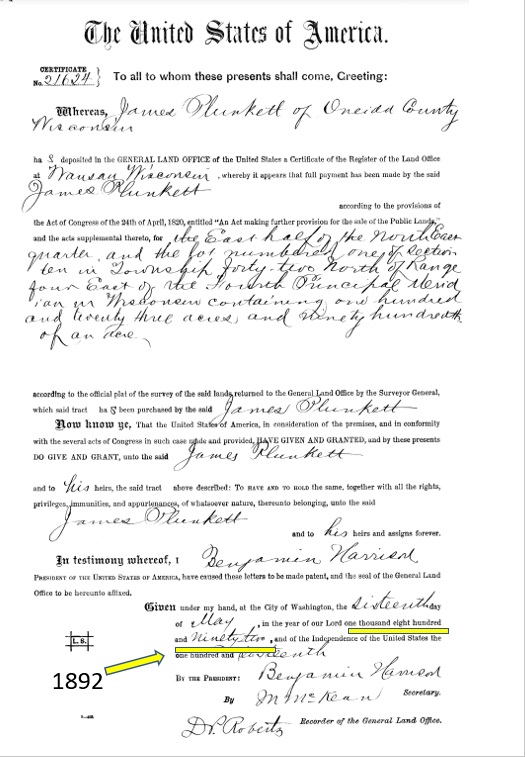 The United States of America.
CERTIFICATE
No. 21624
To all to whom these presents shall come, Greeting:
Whereas, James Plunkett of Oneida County
Wisconsin
ha s deposited in the GENERAL LAND OFFICE of the United States a Certificate of the Register of the Land Office
at Wausau Wisconsin, whereby it appears that full payment has been made by the said
James Plunkett
according to the provisions of
the Act of Congress of the 24th of April, 1820, entitled "An Act making further provision for the sale of the Public Lands,"
and the acts supplemental thereto, for the East half of the North East
quarter, and the lot numbered one of Section
ten in Township forty-two North of Range
four East of the Fourth Principal Merid
ian in Wisconsin containing one hundred
and twenty three acres, and ninety hundredths
of an acre
according to the official plat of the survey of the said lands, returned to the General Land Office by the Surveyor General,
which said tract ha s been purchased by the said James Plunkett
Now know ye, That the United States of America, in consideration of the premises, and in conformity
with the several acts of Congress in such case made and provided, HAVE GIVEN AND GRANTED, and by these presents
DO GIVE AND GRANT, unto the said James Plunkett
and to his heirs, the said tract above described: TO HAVE AND TO HOLD the same, together with all the rights,
privileges, immunities, and appurtenances, of whatsoever nature, thereunto belonging, unto the said
James Plunkett
and to his heirs and assigns forever.
In testimony whereof, I Benjamin Harrison
PRESIDENT OF THE UNITED STATES OF AMERICA, have caused these letters to be made patent, and the seal of the General Land
Office to be hereunto affixed.
Given under my hand, at the City of Washington, the sixteenth day
of May, in the year of our Lord one thousand eight hundred
and ninety two, and of the Independence of the United States the
L. S.
one hundred and sixteenth
1892
BY THE PRESIDENT: Benjamin Harrison
By M McKean Secretary.
D. P. Roberts Recorder of the General Land Office.